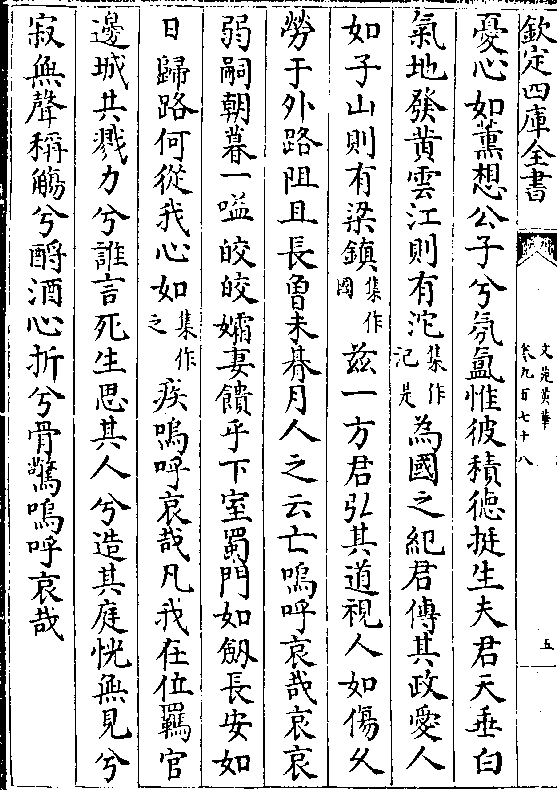 欽定四庫全書
文苑英華
卷九百七十八
五
憂心如薫想公子兮氛氳惟彼積徳挺生夫君天垂白
氣地發黄雲江則有沱集作汜是為國之紀君傳其政愛人
如子山則有梁鎮集作國兹一方君弘其道視人如傷久
勞于外路阻且長曽未朞月人之云亡嗚呼哀哉哀哀
弱嗣朝暮一嗌皎皎孀妻饋乎下室蜀門如劔長安如
日歸路何從我心如集作之疾嗚呼哀哉凡我在位羈官
邊城共戮力兮誰言死生思其人兮造其庭恍無見兮
寂無聲稱觴兮酹酒心折兮骨驚嗚呼哀哉